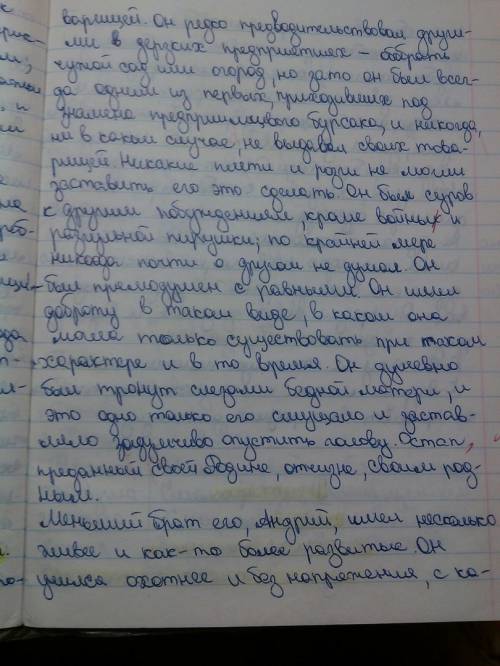 варищей. Он редко предводительствовал други-
ми в дерзких предприятиях – обобрать
чужой сад или огород, но зато он был всег-
да одним из первых, приходивших под
знамена предприимчивого бурсака, и никогда,
ни в каком случае, не выдавал своих това-
рищей. Никакие плети и розги не могли
заставить его это сделать. Он был суров
к другим побуждениям, кроме войны и
разгульной пирушки; по крайней мере
никогда почти о другом не думал. Он
был прямодушен с равными. Он имел
доброту в таком виде, в каком она
могла только существовать при таком
характере и в то время. Он душевно
был тронут слезами бедной матери, и
это одно только его смущало и застав-
ляло задумчиво опустить голову. Остап,
преданный своей Родине, отчизне, своим род-
ным.
Меньший брат его, Андрий, имел несколько
живее и как-то более развитые. Он
учился охотнее и без напряжения, с ка-